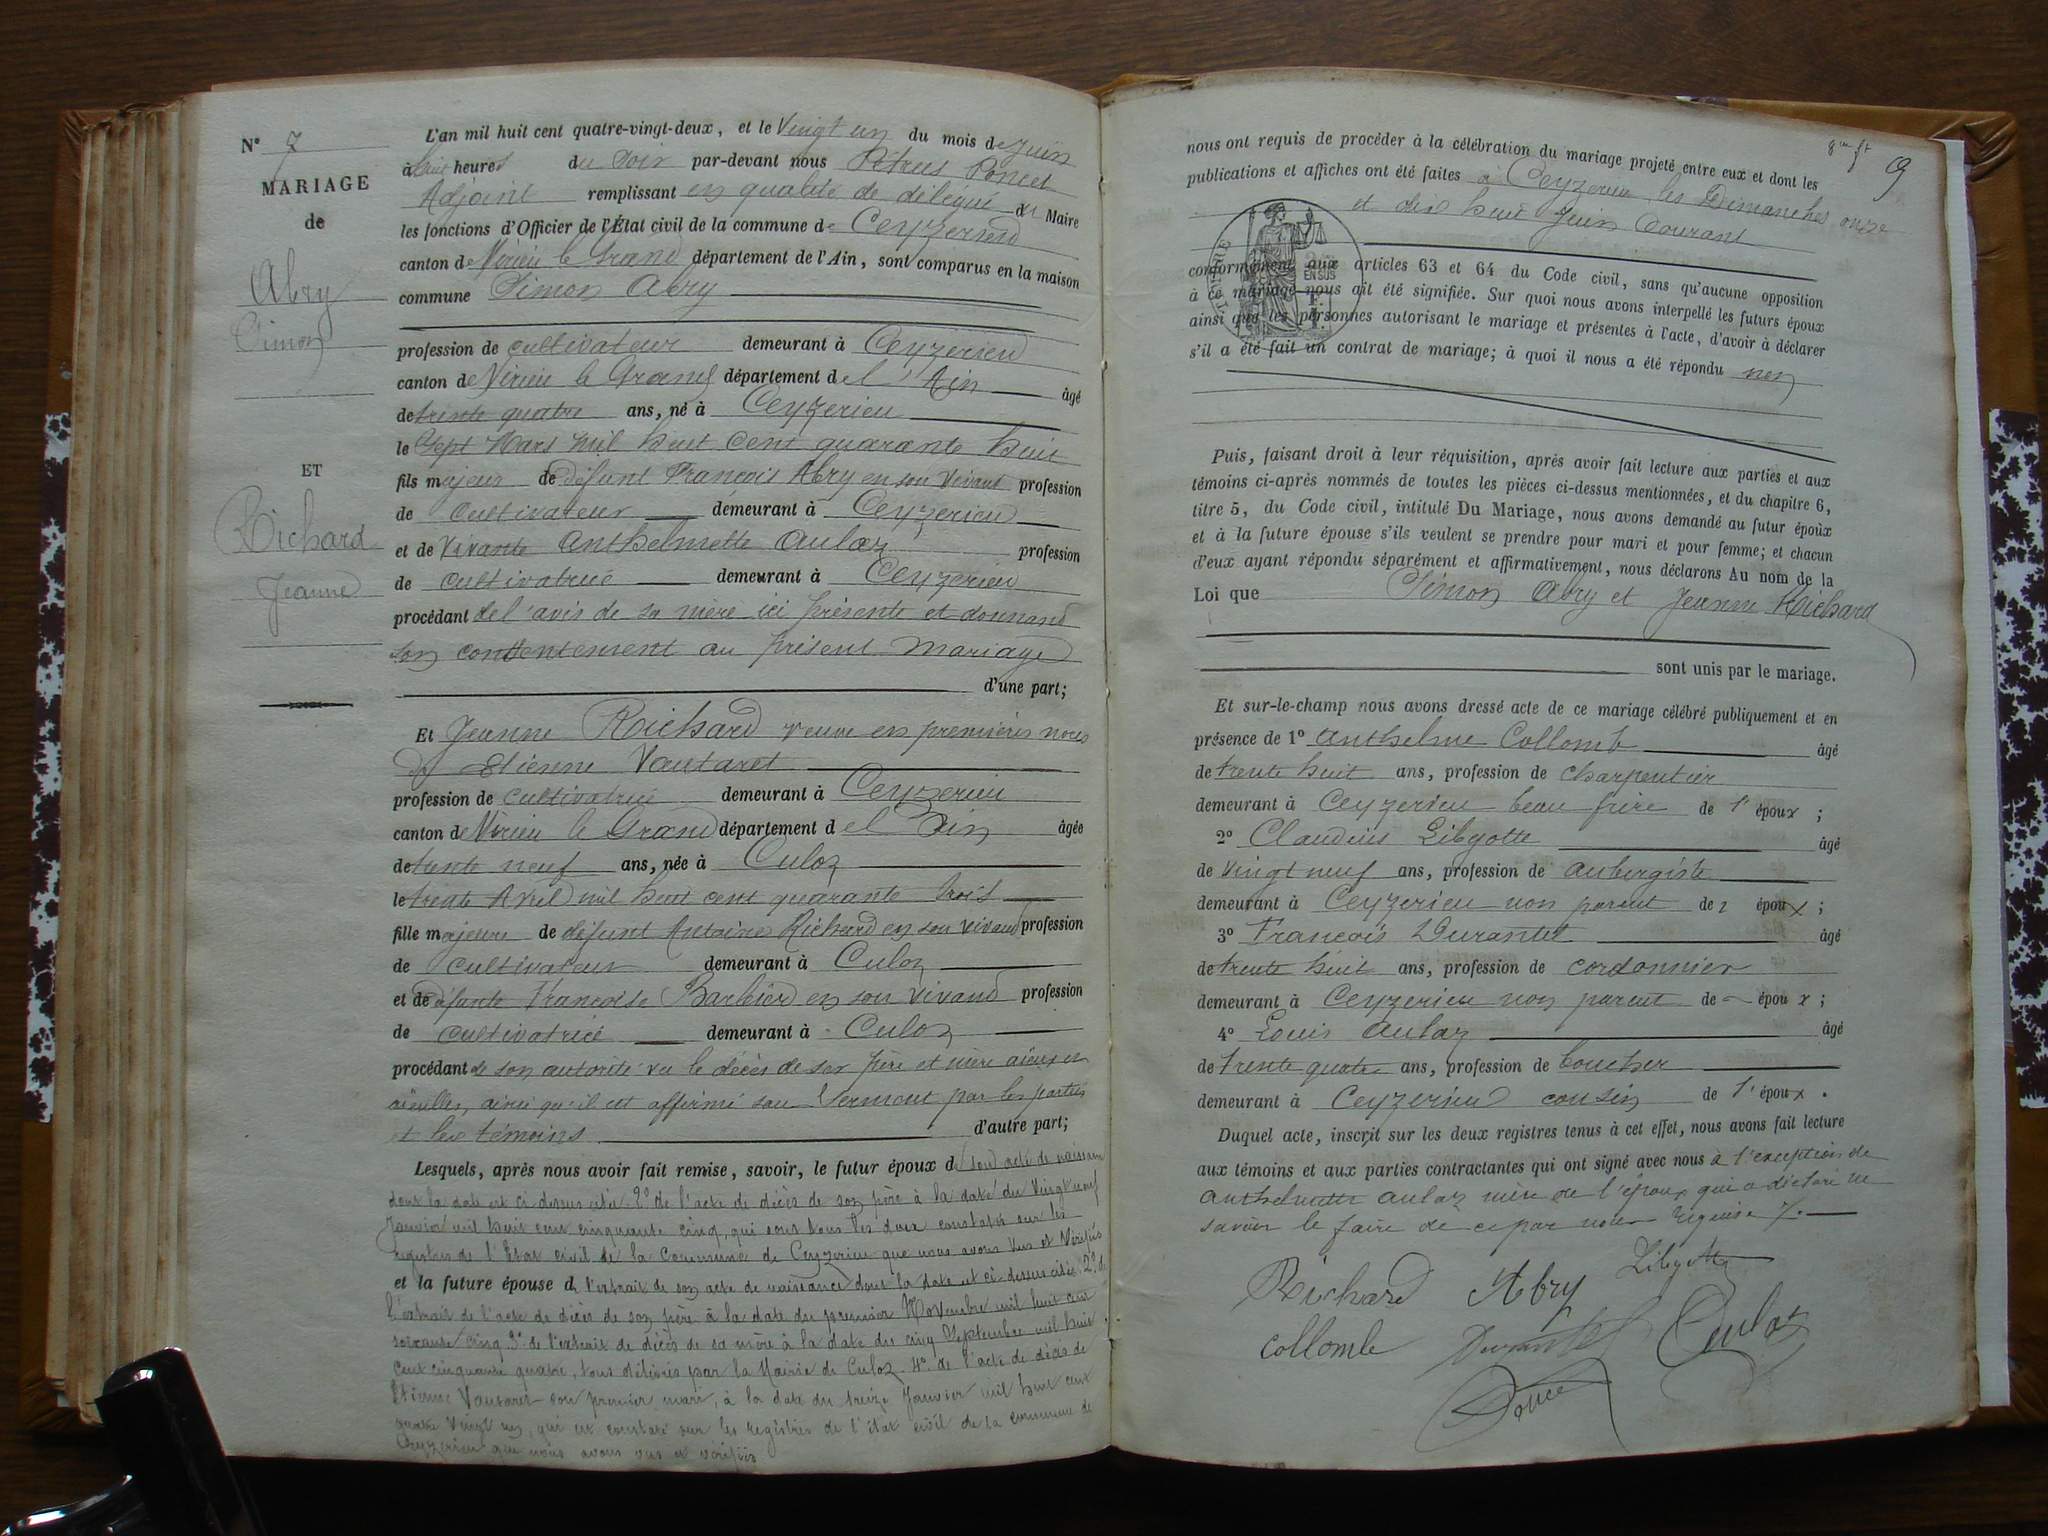 N° 7
MARIAGE
de
Abry
Simon
ET
Richard
Jeanne
L'an mil huit cent quatre-vingt-deux, et le Vingt un du mois de Juin
à huit heures du Soir par-devant nous Pétrus Poncet
Adjoint remplissant en qualité de délégué du Maire
les fonctions d'Officier de l'État civil de la commune de Ceyzerieu
canton de Virieu le Grand département de l'Ain, sont comparus en la maison
commune Simon Abry
profession de cultivateur demeurant à Ceyzerieu
canton de Virieu le Grand département de l'Ain âgé
de trente quatre ans, né à Ceyzerieu
le Sept Mars mil huit cent quarante huit
fils majeur de défunt François Abry en son vivant profession
de cultivateur demeurant à Ceyzerieu
et de vivante Anthelmette Aulaz profession
de cultivatrice demeurant à Ceyzerieu
procédant de l'avis de sa mère ici présente et donnand
son contentement au présent mariage
d'une part;
Et Jeanne Richard veuve en premières noces
de Etienne Vautaret
profession de cultivatrice demeurant à Ceyzerieu
canton de Virieu le Grand département de l'Ain âgée
de trente neuf ans, née à Culoz
le trente Avril mil huit cent quarante trois
fille majeure de défunt Antoine Richard en son vivand profession
de cultivateur demeurant à Culoz
et de défunte Françoise Barbier en son vivand profession
de cultivatrice demeurant à Culoz
procédant de son autorité vu le décès de ses père et mère aïeux et
aïeulles, ainsi qu'il est affirmé sau Serment par les parties
et les témoins d'autre part;
Lesquels, après nous avoir fait remise, savoir, le futur époux de son acte de naissance
dont la date est ci-dessus citée 2° de l'acte de décès de son père à la date du Vingt neuf
Janvier mil huit cent cinquante cinq, qui sont tous les deux constatés sur les
registres de l'Etat civil de la Commune de Ceyzerieu que nous avons vus et vérifiés
et la future épouse de l'extrait de son acte de naissance dont la date est ci-dessus citée 2° de
l'extrait de l'acte de décès de son père à la date du premier Novembre mil huit cent
soixante cinq 3° de l'extrait de décès de sa mère à la date du cinq Septembre mil huit
cent cinquante quatre, tous délivrés par la Mairie de Culoz 4° de l'acte de décès de
Etienne Vautaret son premier mari, à la date du treize Janvier mil huit cent
quatre Vingt un, qui est constaté sur les registres de l'état civil de la commune de
Ceyzerieu que nous avons vus et vérifiés
9
nous ont requis de procéder à la célébration du mariage projeté entre eux et dont les
publications et affiches ont été faites à Ceyzerieu les Dimanches onze
et dix huit Juin Courant
EN SUS
conformément aux articles 63 et 64 du Code civil, sans qu'aucune opposition
à ce mariage nous ait été signifiée. Sur quoi nous avons interpellé les futurs époux
ainsi que les personnes autorisant le mariage et présentes à l'acte, d'avoir à déclarer
s'il a été fait un contrat de mariage; à quoi il nous a été répondu non
Puis, faisant droit à leur réquisition, après avoir fait lecture aux parties et aux
témoins ci-après nommés de toutes les pièces ci-dessus mentionnées, et du chapitre 6,
titre 5, du Code civil, intitulé Du Mariage, nous avons demandé au futur époux
et à la future épouse s'ils veulent se prendre pour mari et pour femme; et chacun
d'eux ayant répondu séparément et affirmativement, nous déclarons Au nom de la
Loi que Simon Abry et Jeanne Richard
sont unis par le mariage.
Et sur-le-champ nous avons dressé acte de ce mariage célébré publiquement et en
présence de 1° Anthelme Collomb âgé
de trente huit ans, profession de charpentier
demeurant à Ceyzerieu beau frère de l'époux;
2° Claudius Libgotte âgé
de Vingt neuf ans, profession de aubergiste
demeurant à Ceyzerieu non parent de époux;
3° François Durantet âgé
de trente huit ans, profession de cordonnier
demeurant à Ceyzerieu non parent de époux;
4° Louis Aulaz âgé
de trente quatre ans, profession de boucher
demeurant à Ceyzerieu cousin de l'époux.
Duquel acte, inscrit sur les deux registres tenus à cet effet, nous avons fait lecture
aux témoins et aux parties contractantes qui ont signé avec nous à l'exception de
Anthelmette Aulaz mère de l'époux qui a déclaré ne
savoir le faire de ce par nous requise
Richard Abry Libgotte
Collomb Durantet Aulaz
Poncet